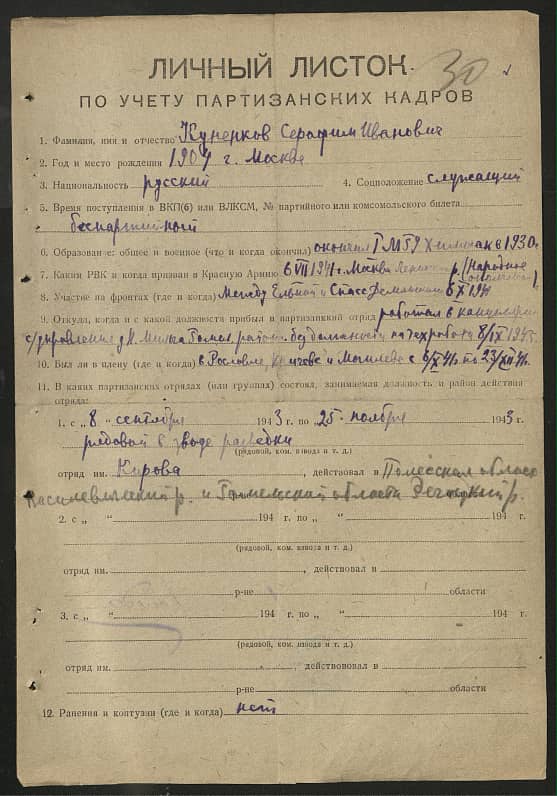 ЛИЧНЫЙ ЛИСТОК
30
ПО УЧЕТУ ПАРТИЗАНСКИХ КАДРОВ
1. Фамилия, имя и отчество Куненков Серафим Иванович
2. Год и место рождения 1904 г. Москва
3. Национальность русский 4. Соцположение служащий
5. Время поступления в ВКП(б) или ВЛКСМ, № партийного или комсомольского билета
беспартийный
6. Образование: общее и военное (что и когда окончил) окончил 1 МГУ Химфак в 1930г.
7. Каким РВК и когда призван в Красную Армию 6 VII 1941 г. Москва Ленинск. р. (Народное ополчение)
8. Участие на фронтах (где и когда) Между Ельной и Спасс Деменском 6 X 1941
9. Откуда, когда и с какой должности прибыл в партизанский отряд работал в канцелярии
без должности на
10. Был ли в плену (где и когда) в Рославле, Кричеве и Могилеве с 6/X 41г. по 23/XII 41г.
11. В каких партизанских отрядах (или группах) состоял, занимаемая должность и район действия
отряда:
1. с „ 8 “ сентября 1943 г. по „ 25 “ ноября 1943 г.
рядовой взвода разведки
(рядовой, ком. взвода и т. д.)
отряд им. Кирова, действовал в Полесская область
Василевичский р. и Гомельский область Речицкий р.
2. с „ “ 194 г. по „ “ 194 г.
(рядовой, ком. взвода и т. д.)
отряд им. , действовал в
р-не области
3. с „ “ 194 г. по „ “ 194 г.
(рядовой, ком. взвода и т. д.)
отряд им. , действововал в
р-не области
12. Ранения и контузии (где и когда) нет